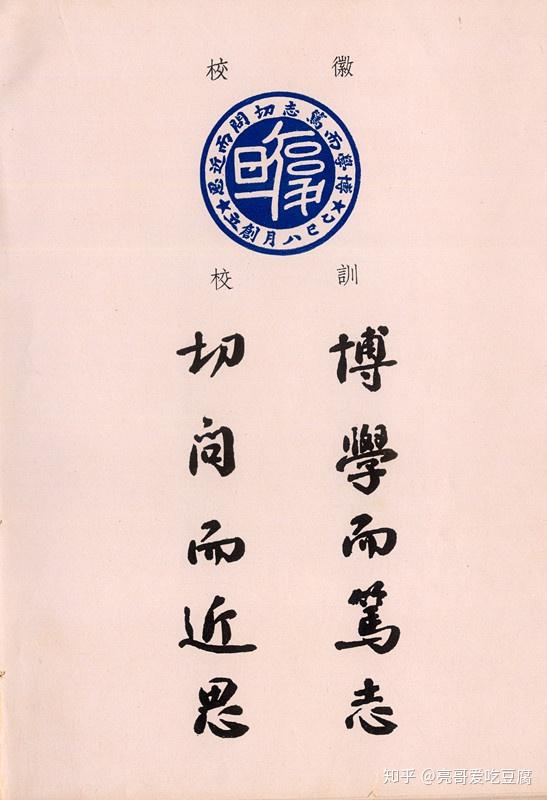 校徽
博學而篤志切問而近思
復旦
乙巳八月創立
校訓
博學而篤志
切問而近思
知乎 @亮哥爱吃豆腐